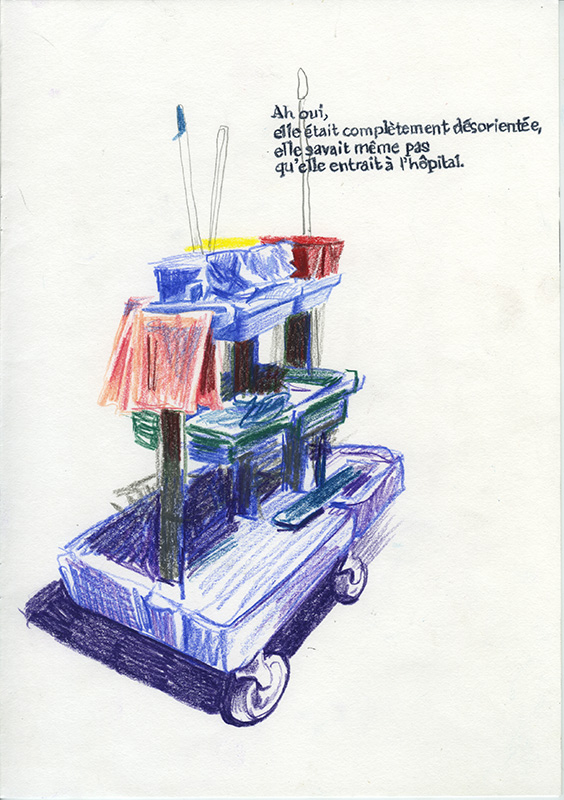 Ah oui,
elle était complètement désorientée,
elle savait même pas
qu'elle entrait à l'hôpital.